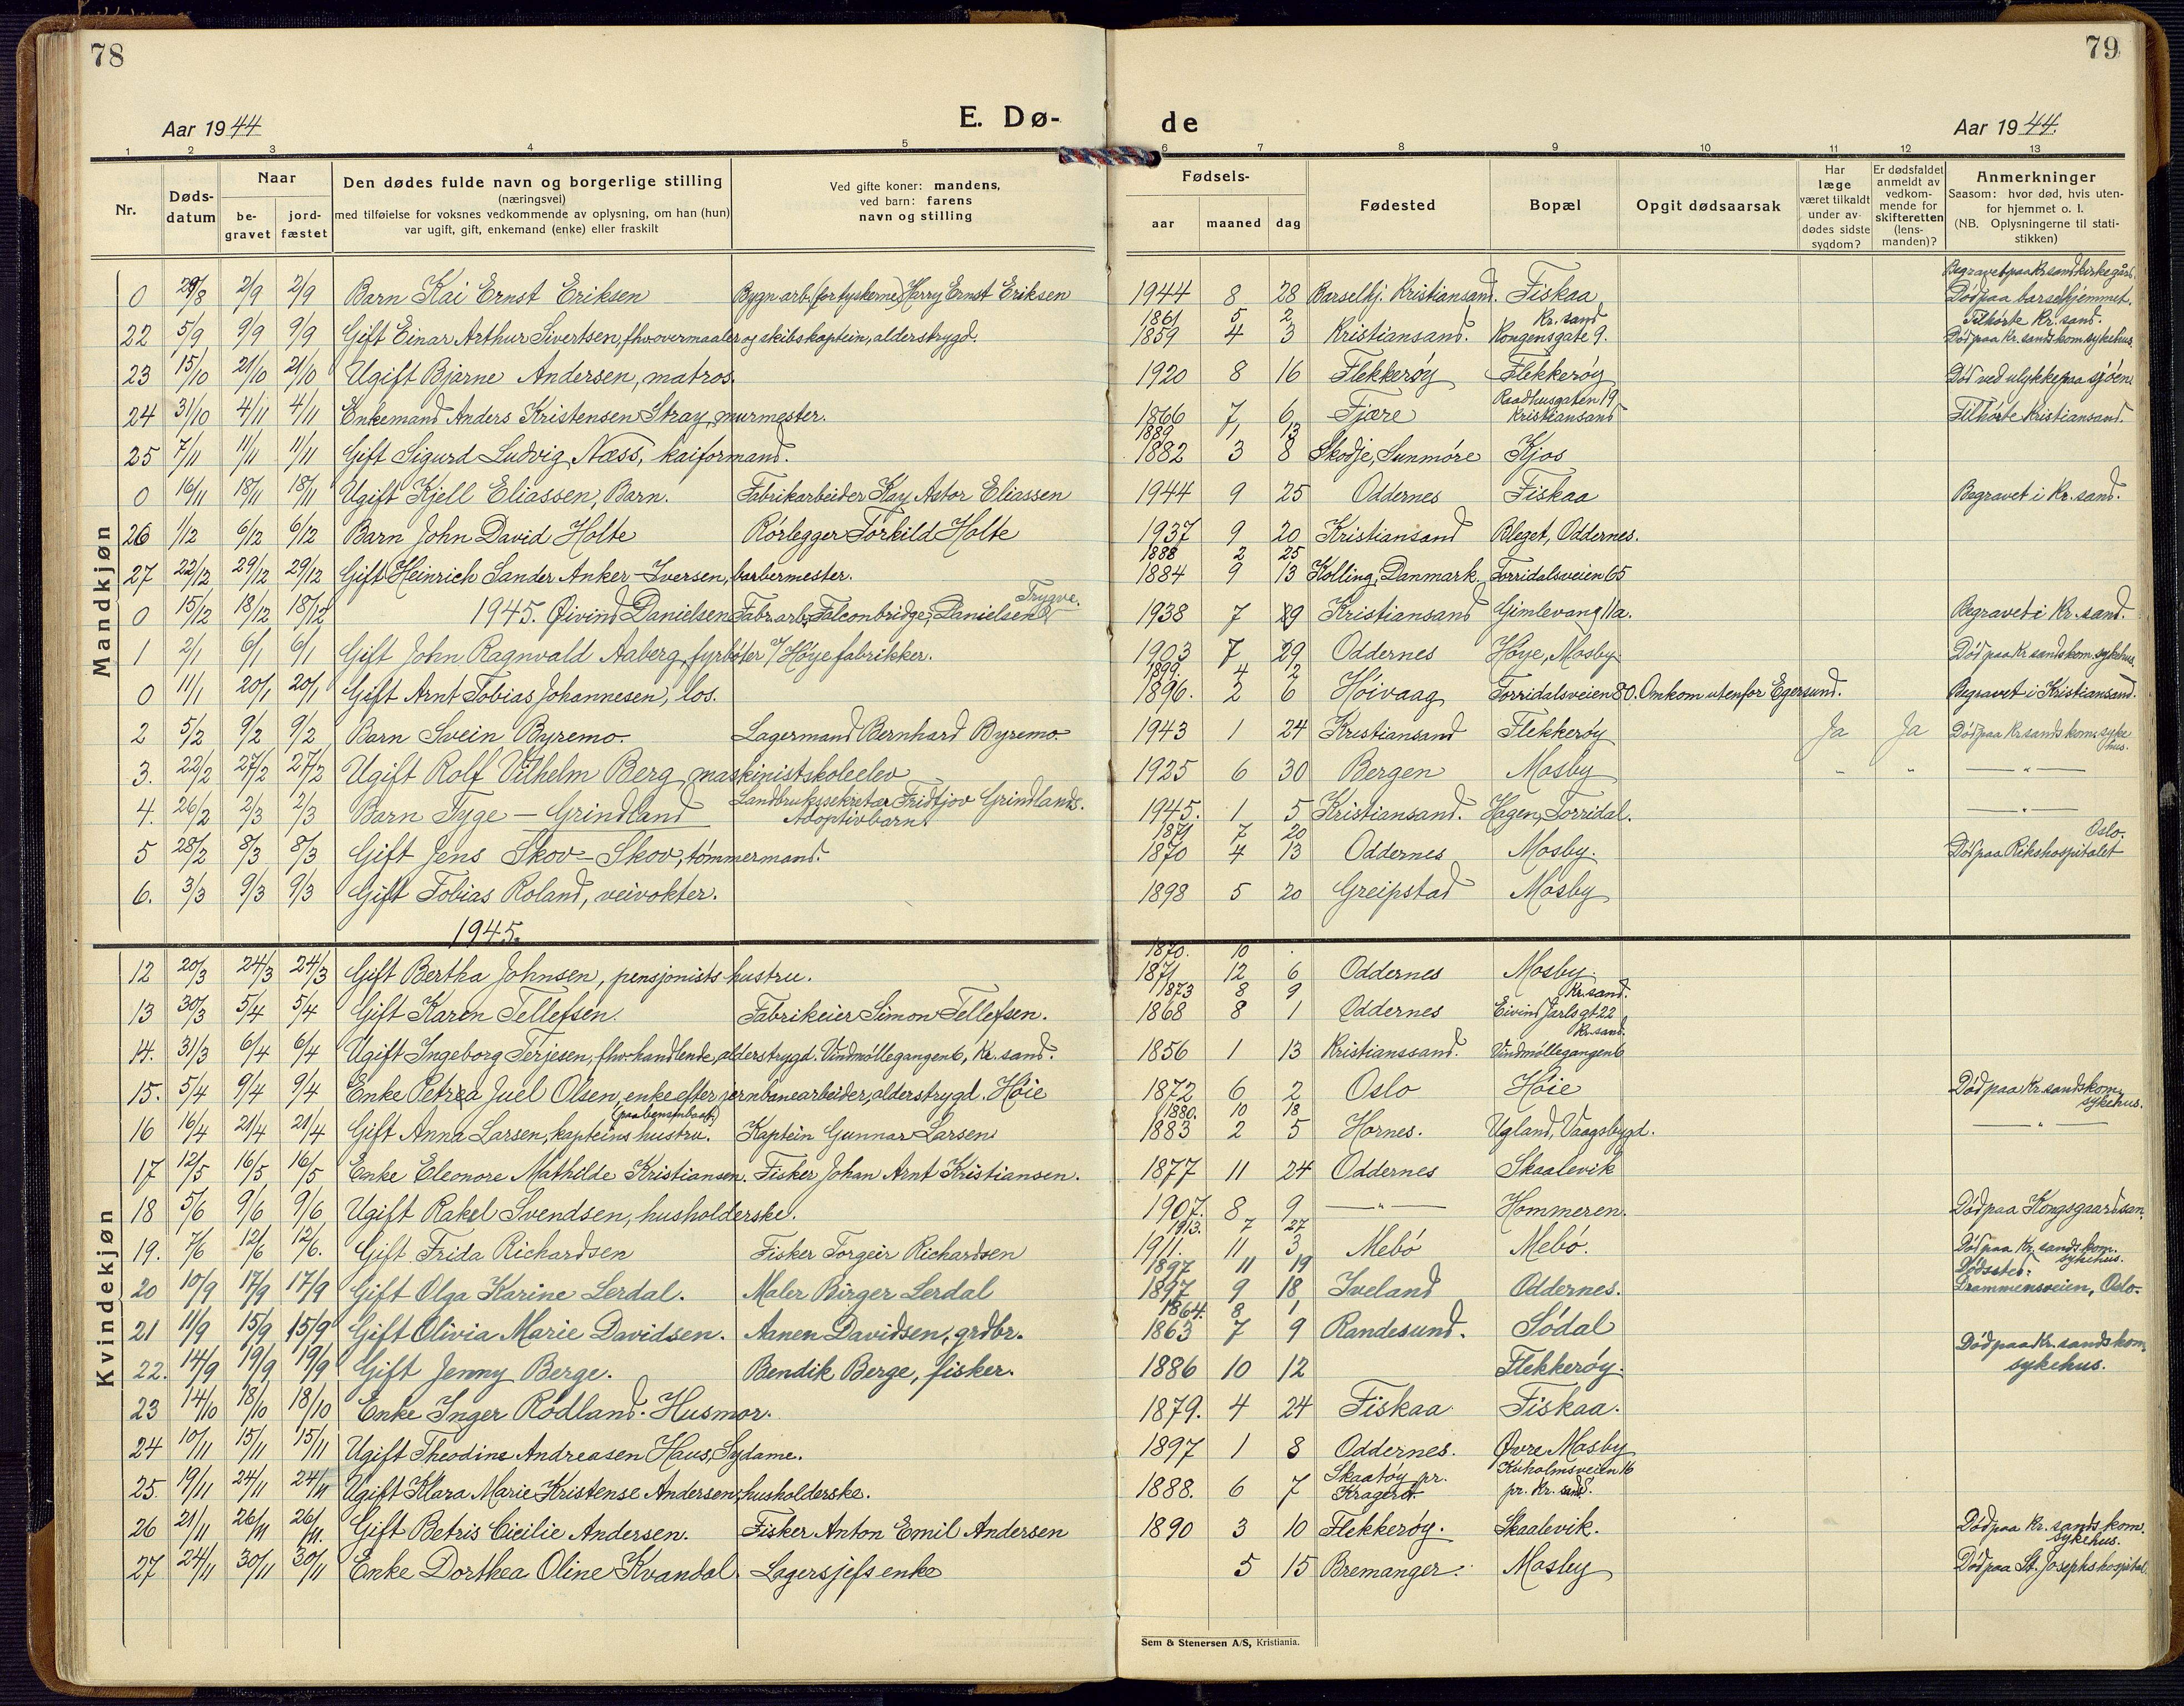 78
79
Aar 1944
E. Dø-
de
Aar 1944.
1 2 3 4 5 6 7 8 9 10 11 12 13
Nr.
Døds-datum
Naar
be-gravet
jord-fæstet
Den dødes fulde navn og borgerlige stilling
(næringsvei)
med tilføielse for voksnes vedkommende av oplysning, om han (hun)
var ugift, gift, enkemand (enke) eller fraskilt
Ved gifte koner: mandens,
ved barn: farens
navn og stilling
Fødsels-
aar maaned dag
Fødested
Bopæl
Opgit dødsaarsak
Har læge været tilkaldt under av-dødes sidste sygdom?
Er dødsfaldet anmeldt av vedkom-mende for skifteretten (lens-manden)?
Anmerkninger
Saasom: hvor død, hvis uten-for hjemmet o. l.
(NB. Oplysningerne til stati-stikken)
Mandkjøn
0 29/8 2/9 2/9 Barn Kai Ernst Eriksen Bygn.arb. (for tyskerne) Harry Ernst Eriksen 1944 8 28 Barselhj. Kristiansand. Fiskaa Begravet paa Kr.sand kirkegård. Død paa barselhjemmet.
22 5/9 9/9 9/9 Gift Einar Arthur Sivertsen, fhv. overmaaler og skibskaptein, alderstrygd. 1861 5 2 1859 4 3 Kristiansand. Kr.sand Kongensgate 9. Tilhørte Kr.sand. Død paa Kr.sands kom. sykehus.
23 15/10 21/10 21/10 Ugift Bjarne Andersen, matros. 1920 8 16 Flekkerøy Flekkerøy Død ved ulykke paa sjøen.
24 31/10 4/11 4/11 Enkemand Anders Kristensen Stray, murmester. 1866 7 6 Fjære Raadhusgaten 19 Kristiansand Tilhørte Kristiansand.
25 7/11 11/11 11/11 Gift Sigurd Ludvig Næss, kaiformand. 1889 1 13 1882 3 8 Skodje, Sunmøre Kjos
0 16/11 18/11 18/11 Ugift Kjell Eliassen, Barn. Fabrikarbeider Kay Astor Eliassen 1944 9 25 Oddernes Fiskaa Begravet i Kr.sand.
26 1/12 6/12 6/12 Barn John David Holte Rørlegger Torkild Holte 1937 9 20 Kristiansand Bleget, Oddernes.
27 22/12 29/12 29/12 Gift Heinrich Sander Anker-Iversen, barbermester. 1888 2 25 1884 9 13 Kolling, Danmark. Torridalsveien 65
0 15/12 18/12 18/12 1945. Øivind Danielsen Fabr.arb. Falconbridge, Trygve. Danielsen 1938 7 9 Kristiansand Gimlevang 11a. Begravet i Kr.sand.
1 2/1 6/1 6/1 Gift John Ragnvald Aaberg, fyrbøter v/ Høye fabrikker. 1903 7 29 Oddernes Høye, Mosby. Død paa Kr.sands kom. sykehus.
0 11/1 20/1 20/1 Gift Arnt Tobias Johannesen, los. 1899. 4 2 1896. 2 6 Høivaag Torridalsveien 80. Omkom utenfor Egersund. Begravet i Kristiansand.
2 5/2 9/2 9/2 Barn Svein Byremo. Lagermand Bernhard Byremo. 1943 1 24 Kristiansand Flekkerøy Ja Ja Død paa Kr.sands kom. sykehus.
3. 22/2 27/2 27/2 Ugift Rolf Vilhelm Berg, maskinistskoleelev 1925 6 30 Bergen Mosby " " — " —
4. 26/2 2/3 2/3 Barn Tyge - Grindland Landbrukssekretær Fridtjov Grindlands. Adoptivbarn. 1945. 1 5 Kristiansand. Hagen, Torridal. — " —
5 28/2 8/3 8/3 Gift Jens Skov-Skov, tømmermand. 1871 7 20 1870 4 13 Oddernes Mosby. Død paa Rikshospitalet Oslo.
6. 3/3 9/3 9/3 Gift Tobias Roland, veivokter. 1898 5 20 Greipstad Mosby
1945.
Kvindekjøn
12 20/3 24/3 24/3 Gift Bertha Johnsen, pensjonists hustru. 1870. 10 . 1871 12 6 Oddernes Mosby.
13 30/3 5/4 5/4 Gift Karen Tellefsen. Fabrikeier Simon Tellefsen. 1873 8 9 1868 8 1 Oddernes Kr.sand. Eivind Jarls gt 22
14. 31/3 6/4 6/4 Ugift Ingeborg Terjesen, fhv. handlende, alderstrygd. Vindmøllegangen 6, Kr.sand. 1856 1 13 Kristianssand. Kr.sand. Vindmøllegangen 6
15. 5/4 9/4 9/4 Enke Petrea Juel Olsen, enke efter jernbanearbeider, alderstrygd. Høie 1872 6 2 Oslo Høie Død paa Kr.sands kom. sykehus.
16 16/4 21/4 21/4 Gift Anna Larsen, kapteins hustru. (paa bensinbaat) Kaptein Gunnar Larsen 1880. 10 18 1883 2 5 Hornes. Ugland, Vaagsbygd. — " —
17 12/5 16/5 16/5 Enke Eleonore Mathilde Kristiansen. Fisker Johan Arnt Kristiansen. 1877 11 24 Oddernes Skaalevik
18 5/6 9/6 9/6 Ugift Rakel Svendsen, husholderske. 1907. 8 9 — " — Hommeren. Død paa Kongsgaard san.
19. 7/6 12/6 12/6. Gift Frida Richardsen Fisker Torgeir Richardsen 1913. 7 27 1911. 11 3 Mebø Mebø. Død paa Kr.sands kom. sykehus.
20 10/9 17/9 17/9 Gift Olga Karine Lerdal. Maler Birger Lerdal 1897 11 19 1897 9 18 Iveland Oddernes. Dødssted: Drammensveien, Oslo.
21 11/9 15/9 15/9 Gift Olivia Marie Davidsen. Aanen Davidsen, grdbr. 1864. 8 1 1863 7 9 Randesund. Sødal
22. 14/9 19/9 19/9 Gift Jenny Berge. Bendik Berge, fisker. 1886 10 12 Flekkerøy. Død paa Kr.sands kom. sykehus.
23 14/10 18/10 18/10 Enke Inger Rødland. Husmor. 1879. 4 24 Fiskaa Fiskaa.
24 10/11 15/11 15/11 Ugift Theodine Andreasen Haus, Sydame. 1897 1 8 Oddernes. Øvre Mosby
25. 19/11 24/11 24/11 Ugift Klara Marie Kristense Andersen, husholderske. 1888. 6 7 Skaatøy pr. Kragerø. Kuholmsveien 16 pr. Kr.sand.
26 21/11 26/11 26/11. Gift Betris Cicilie Andersen. Fisker Anton Emil Andersen 1890 3 10 Flekkerøy. Skaalevik. Død paa Kr.sands kom. sykehus.
27 24/11 30/11 30/11 Enke Dorthea Oline Kvandal. Lagersjefs enke 5 15 Bremanger. Mosby Død paa St. Josephs hospital.
Sem & Stenersen A/S, Kristiania.